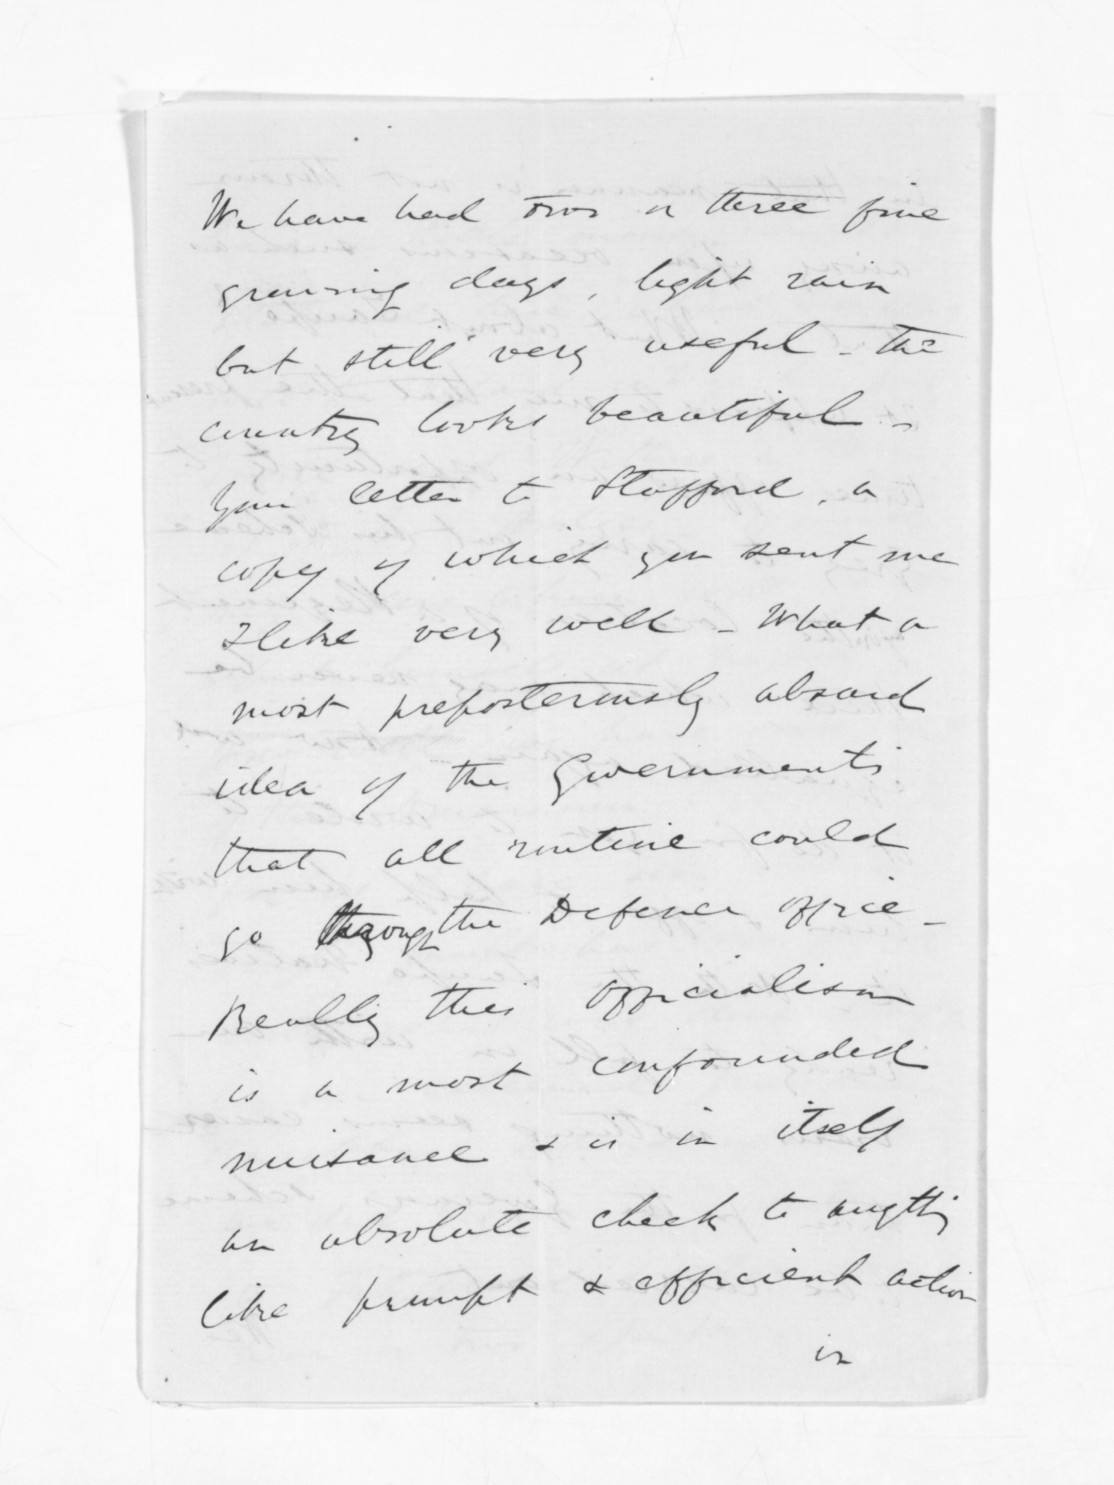 We have had two or three fine
growing days, light rain
but still very useful - the
country looks beautiful -
Your letter to Stafford, a
copy of which you sent me
I like very well - What a
most preposterously absurd
idea of the Governments
that all routine could
go through the Defence office -
Really this officialism
is a most confounded
nuisance & is in itself
an absolute check to anythg
like prompt & efficient action
in